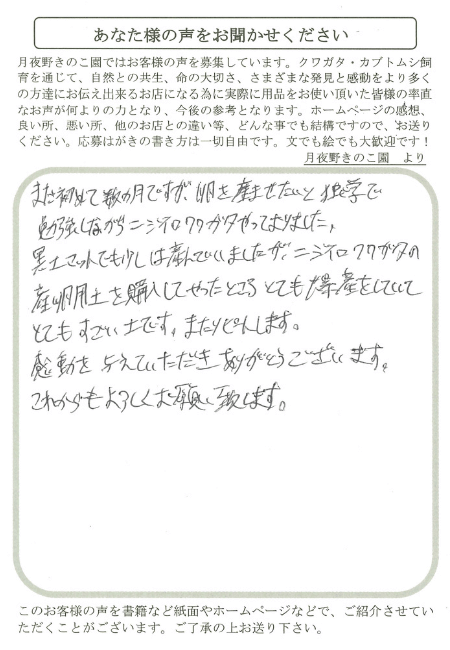 あなた様の声をお聞かせください
月夜野きのこ園ではお客様の声を募集しています。クワガタ・カブトムシ飼
育を通じて、自然との共生、命の大切さ、さまざまな発見と感動をより多く
の方達にお伝え出来るお店になる為に実際に用品をお使い頂いた皆様の率直
なお声が何よりの力となり、今後の参考となります。ホームページの感想、
良い所、悪い所、他のお店との違い等、どんな事でも結構ですので、お送り
ください。応募はがきの書き方は一切自由です。文でも絵でも大歓迎です！
月夜野きのこ園　より
まだ初めて数ヶ月ですが、卵を産ませたいと独学で
勉強しながらニジイロクワガタやっておりました。
黒土マットでも少しは産んでいましたが、ニジイロクワガタの
産卵用土を購入してやったところ とても爆産をしていて
とてもすごい土です。またリピします。
感動を与えていただきありがとうございます。
これからもよろしくお願い致します。
このお客様の声を書籍など紙面やホームページなどで、ご紹介させてい
ただくことがございます。ご了承の上お送り下さい。